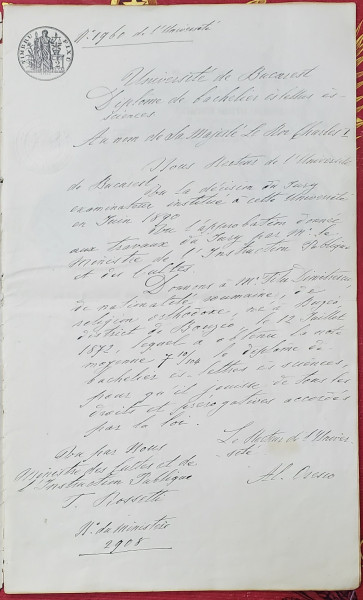 TIMBRU FIX
N° 1960 de l'Université
Université de Bucarest
Diplome de bachelier ès lettres ès-
sciences
Au nom de Sa Majesté Le Roi Charles I
Nous Recteur de l'Université
de Bucarest
Vu la décision du Jury
examinateur institué à cette Université
en Juin 1890
Vu l'approbation donnée
aux travaux du Jury par Mr. le
Ministre de l'Instruction Publique
et des Cultes
Donnons à Mr.
de nationalité roumaine, de
religion orthodoxe, né à Bouzéo
district de Bouzéo le 12 Juillet
1872, lequel a obtenu la note
moyenne 7 10/14 le diplome de
bachelier ès lettres ès sciences,
pour qu'il jouisse de tous les
droits et prérogatives accordés
par la loi.
Vu par Nous
Ministre des Cultes et de
l'Instruction Publique
T. Rossetti
Le Recteur de l'Univer
sité
Al.
N° du Ministère
2908